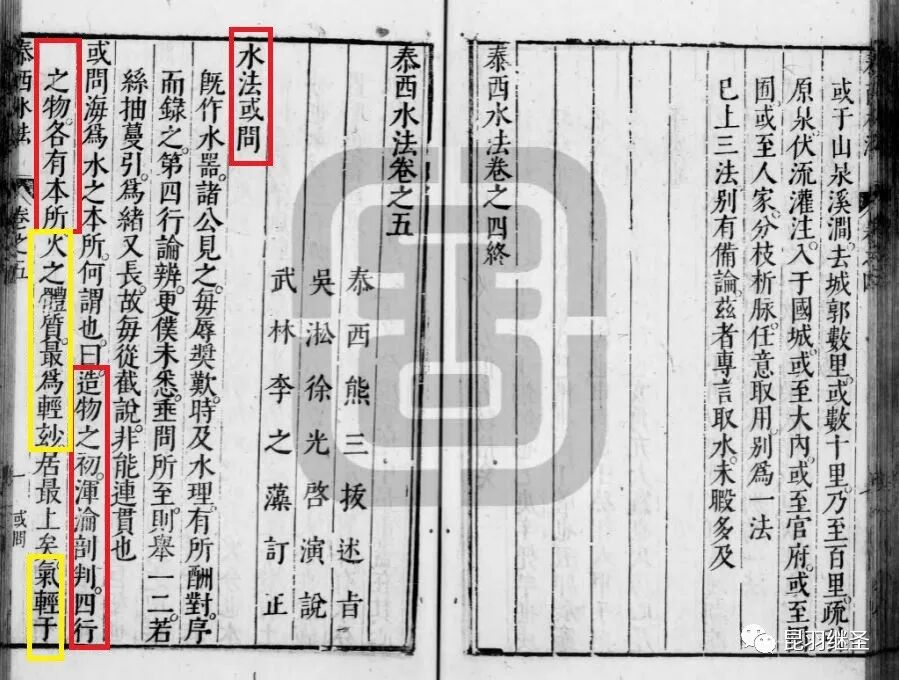 或于山泉溪澗。去城郭數里。或數十里。乃至百里。疏
原泉。伏流灌注。入于國城。或至大內。或至官府。或至
囿。或至人家。分枝析脉。任意取用。別爲一法
已上三法別有備論。茲者專言取水。未暇多及
泰西水法卷之四終
泰西水法卷之五
泰西熊三拔述旨
吳淞徐光啓演說
武林李之藻訂正
水法或問
旣作水器。諸公見之。每辱奬歎。時及水理。有所酬對。序
而錄之。第四行論辨。更僕未悉。垂問所至。則舉一二。若
絲抽蔓引。爲緒又長。故每從截說。非能連貫也
或問海爲水之本所。何謂也。曰。造物之初。渾淪剖判。四行
之物。各有本所。火之體質。最爲輕玅。居最上矣。氣輕于
泰西水法
卷之五
一
或問
昆羽继圣